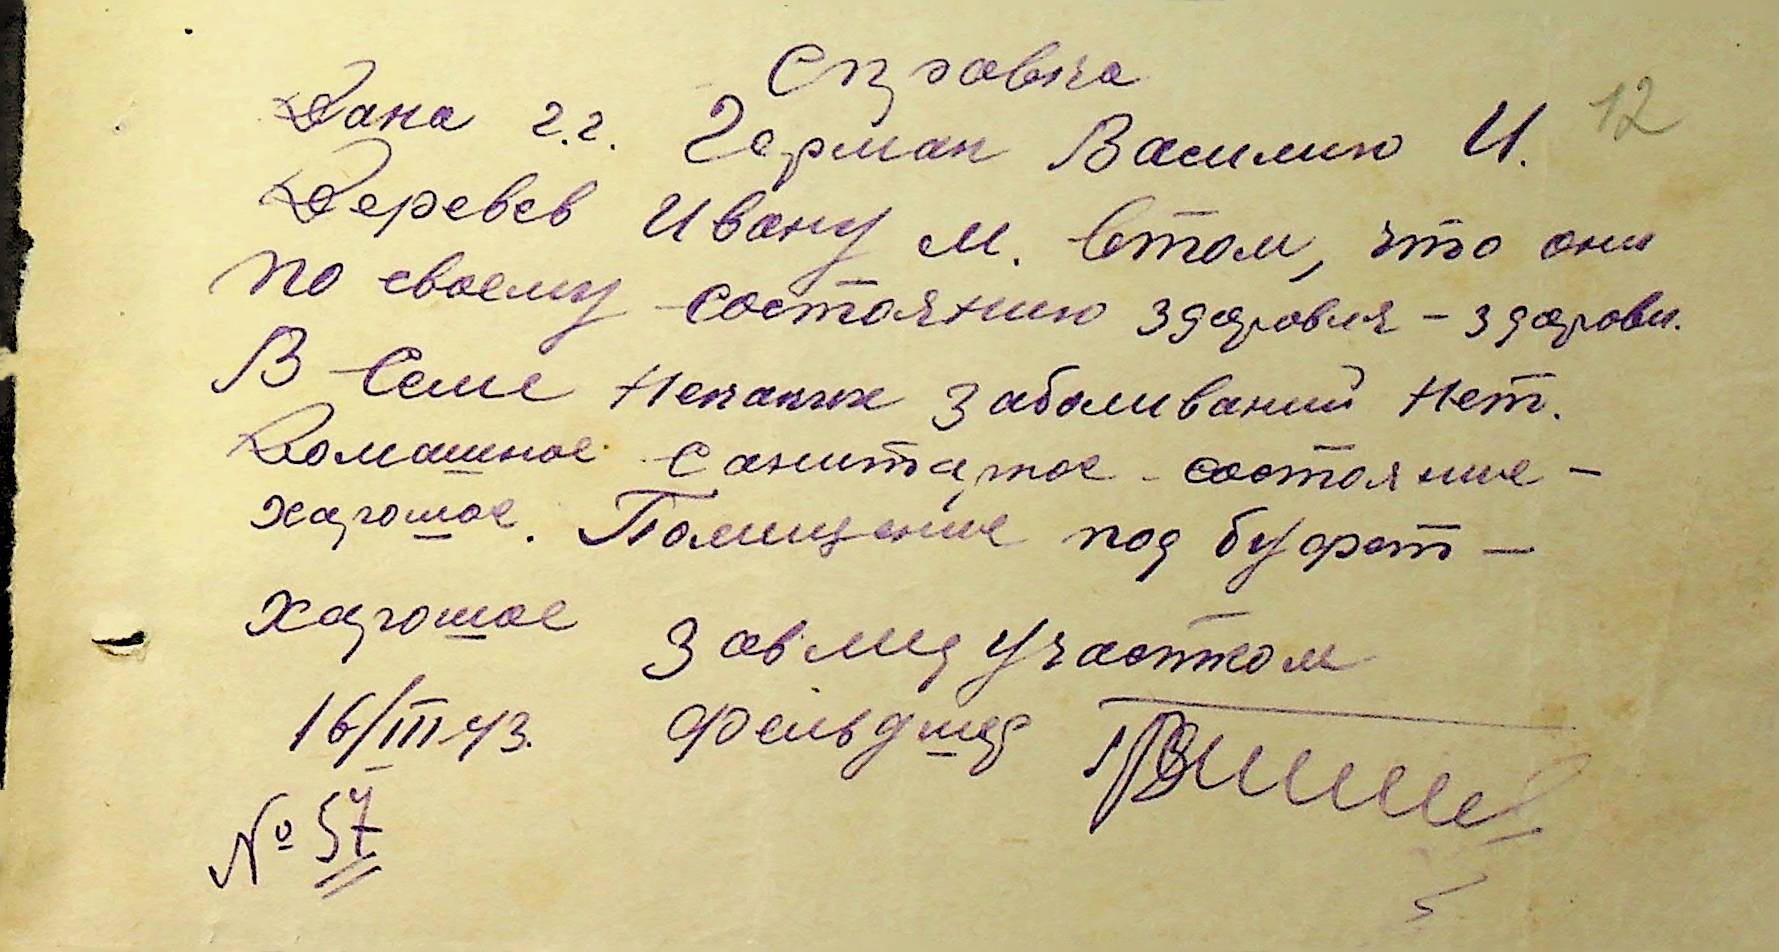 Справка
12
Дана г.г. Герман Василию И.
Деревев Ивану М. Втом, что они
по своему состоянию здоровля – здорови.
В Семе Некаких Заболиваний Нет.
Домашное санитарное состояние –
харошое. Помищение под буфет –
харошое Завмедучастком
16/III 43. Фельдшер
№ 57